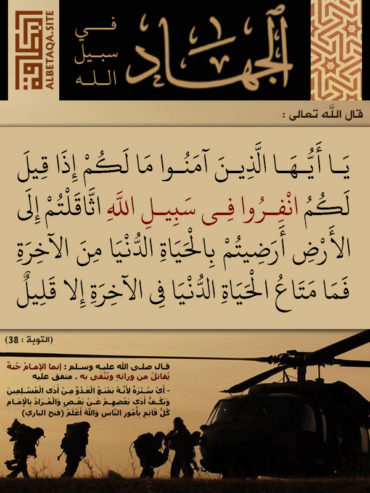 البطاقة
ALBETAQA.SITE
الجهاد
في
سبيل
الله
قال اللَّه تعالى :
يَا أَيُّهَا الَّذِينَ آمَنُوا مَا لَكُمْ إِذَا قِيلَ
لَكُمُ انْفِرُوا فِي سَبِيلِ اللَّهِ اثَّاقَلْتُمْ إِلَى
الأَرْضِ أَرَضِيتُمْ بِالْحَيَاةِ الدُّنْيَا مِنَ الآخِرَةِ
فَمَا مَتَاعُ الْحَيَاةِ الدُّنْيَا فِي الآخِرَةِ إِلا قَلِيلٌ
(التوبة : 38)
قال صلى الله عليه وسلم : إنما الإمامُ جُنةٌ
يُقاتَلُ من ورائِه ويُتَّقى به . متفق عليه
- أَيْ سُتْرَةٌ لأَنَّهُ يَمْنَعُ الْعَدُوَّ مِنْ أَذَى الْمُسْلِمِينَ
وَيَكُفُّ أَذَى بَعْضِهِمْ عَنْ بَعْضٍ وَالْمُرَادُ بِالْإِمَامِ
كُلُّ قَائِمٍ بِأُمُورِ النَّاسِ وَاللَّهُ أَعْلَمُ (فتح الباري)